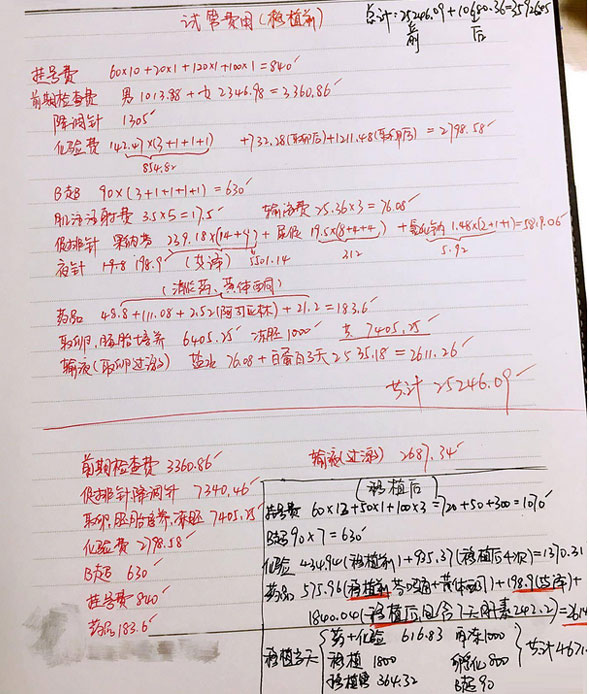 试管费用(移植前)
总计:25246.09+10680.36=35926.45
前 后
挂号费 60×10+20×1+120×1+100×1=840
前期检查费 男1013.88+女2346.98=3360.86
降调针 1305
化验费 142.47×(3+1+1+1) +732.28(取卵后)+1211.48(取卵后)=2798.58
854.82
B超 90×(3+1+1+1+1)=630
肌注注射费 3.5×5=17.5 输液费 25.36×3=76.08
促排针 果纳芬 239.18×(14+9)+尿促 19.5×(8+4+4)+氯化钠 1.48×(2+1+1)=5819.06
5501.14 312 5.92
夜针 198.9 (艾泽)
(消炎药、黄体酮)
药品 48.8+111.08+2.52(阿司匹林)+21.2=183.6
取卵、胚胎培养 6405.25 冻胚1000 共 7405.25
输液(取卵过激) 盐水 76.08+白蛋白3天 2535.18=2611.26
共计 25246.09
前期检查费 3360.86 输液(过激) 2687.34
促排针,降调针 7340.46
取卵,胚胎培养,冻胚 7405.25
化验费 2798.58
B超 630
挂号费 840
药品 183.6
(移植后)
挂号费 60×12+50×1+100×3=720+50+300=1070
B超 90×7=630
化验 434.94(移植前)+935.37(移植后4次)=1370.31
药品 575.96(移植前 芬吗通+黄体酮)+198.9(艾泽)+
1840.04(移植后包含7天肝素242.2)=2614
移植当天 药+化验 616.83 解冻1000
移植 1800 孵化800
移植管 364.32 B超90
共计4671.